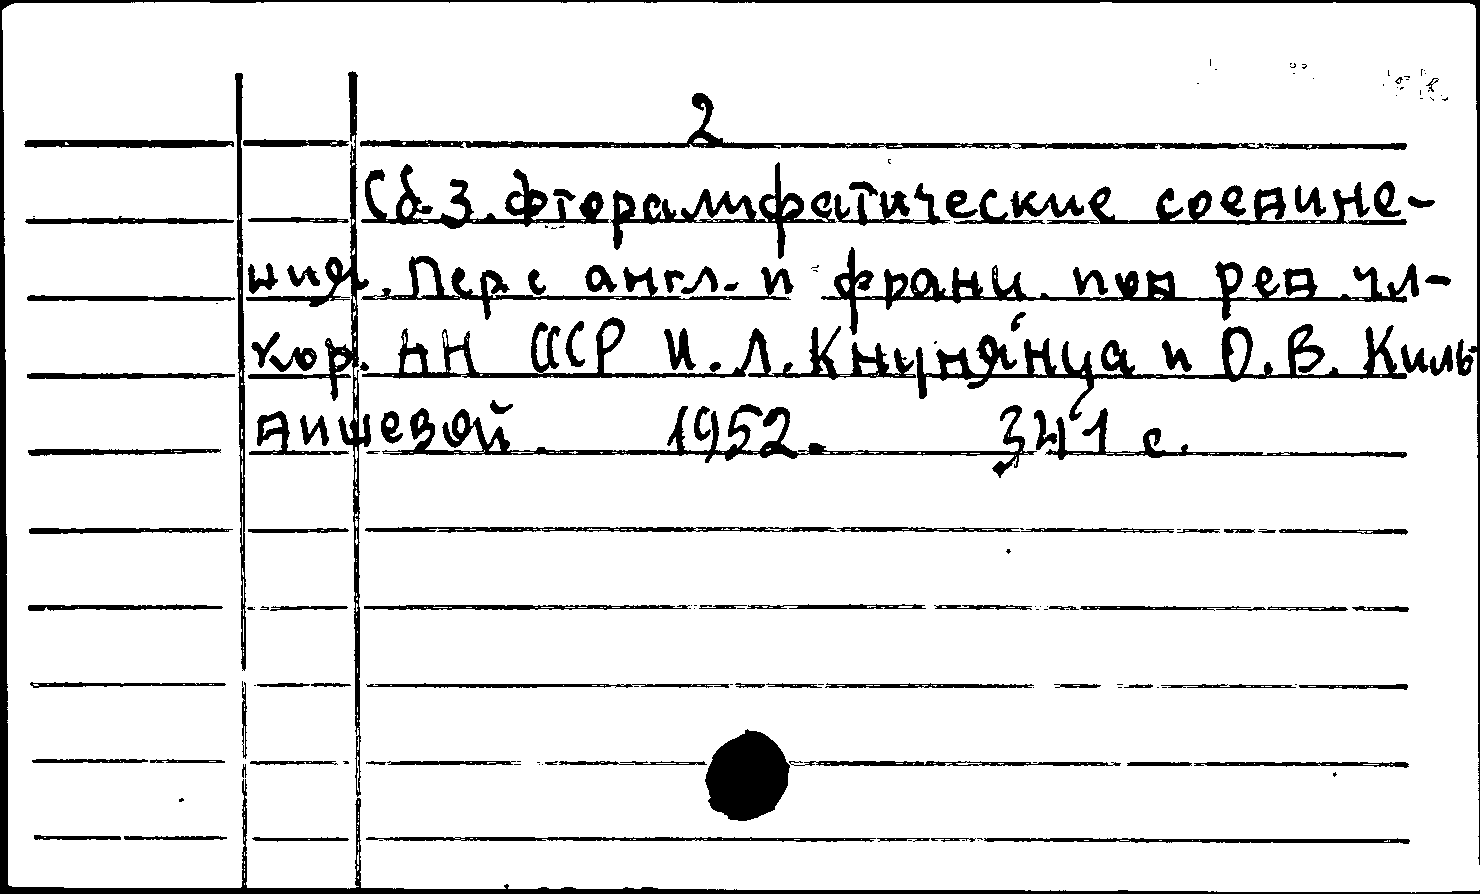 2
Сб. 3. Фторалифатические соедине-
ния. Пер с англ. и франц. под ред. чл-
кор. АН СССР И. Л. Кнунянца и О. В. Киль-
дишевой. 1952. 341 с.